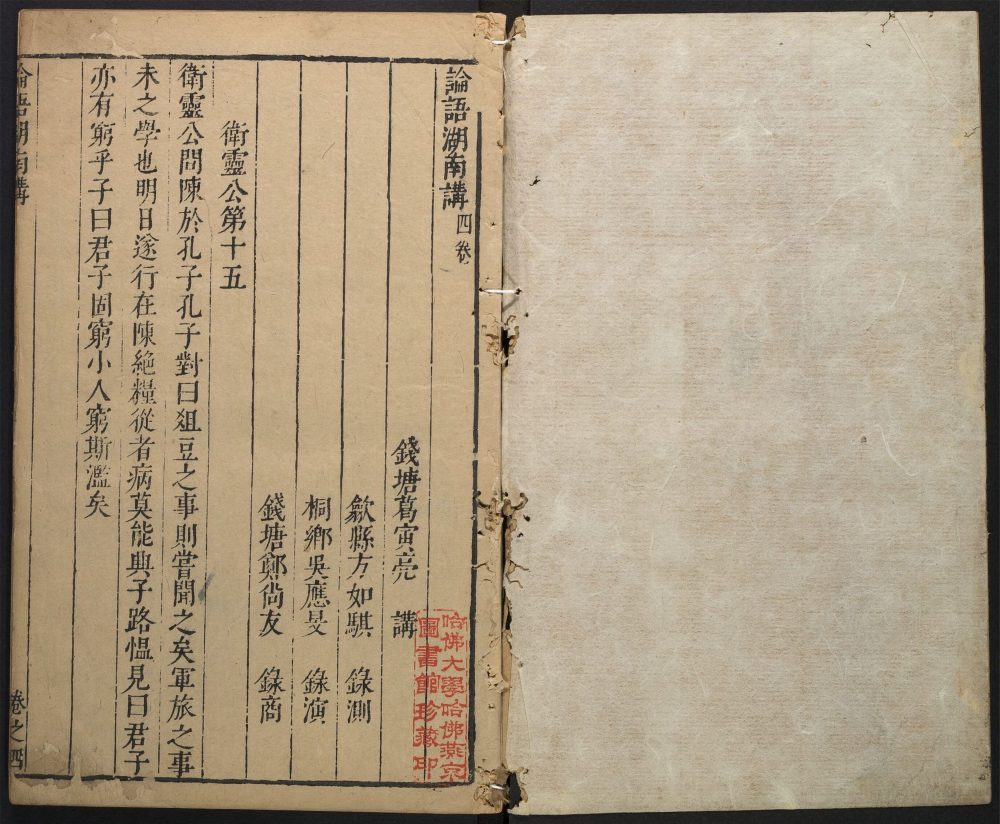 論語湖南講 四卷
錢塘葛寅亮 講
歙縣方如騏 錄測
桐鄉吳應旻 錄演
錢塘鄭尙友 錄商
衛靈公第十五
衛靈公問陳於孔子孔子對曰俎豆之事則嘗聞之矣軍旅之事
未之學也明日遂行在陳絶糧從者病莫能興子路慍見曰君子
亦有窮乎子曰君子固窮小人窮斯濫矣
論語湖南講
卷之四
哈佛大學哈佛燕京
圖書館珍藏印